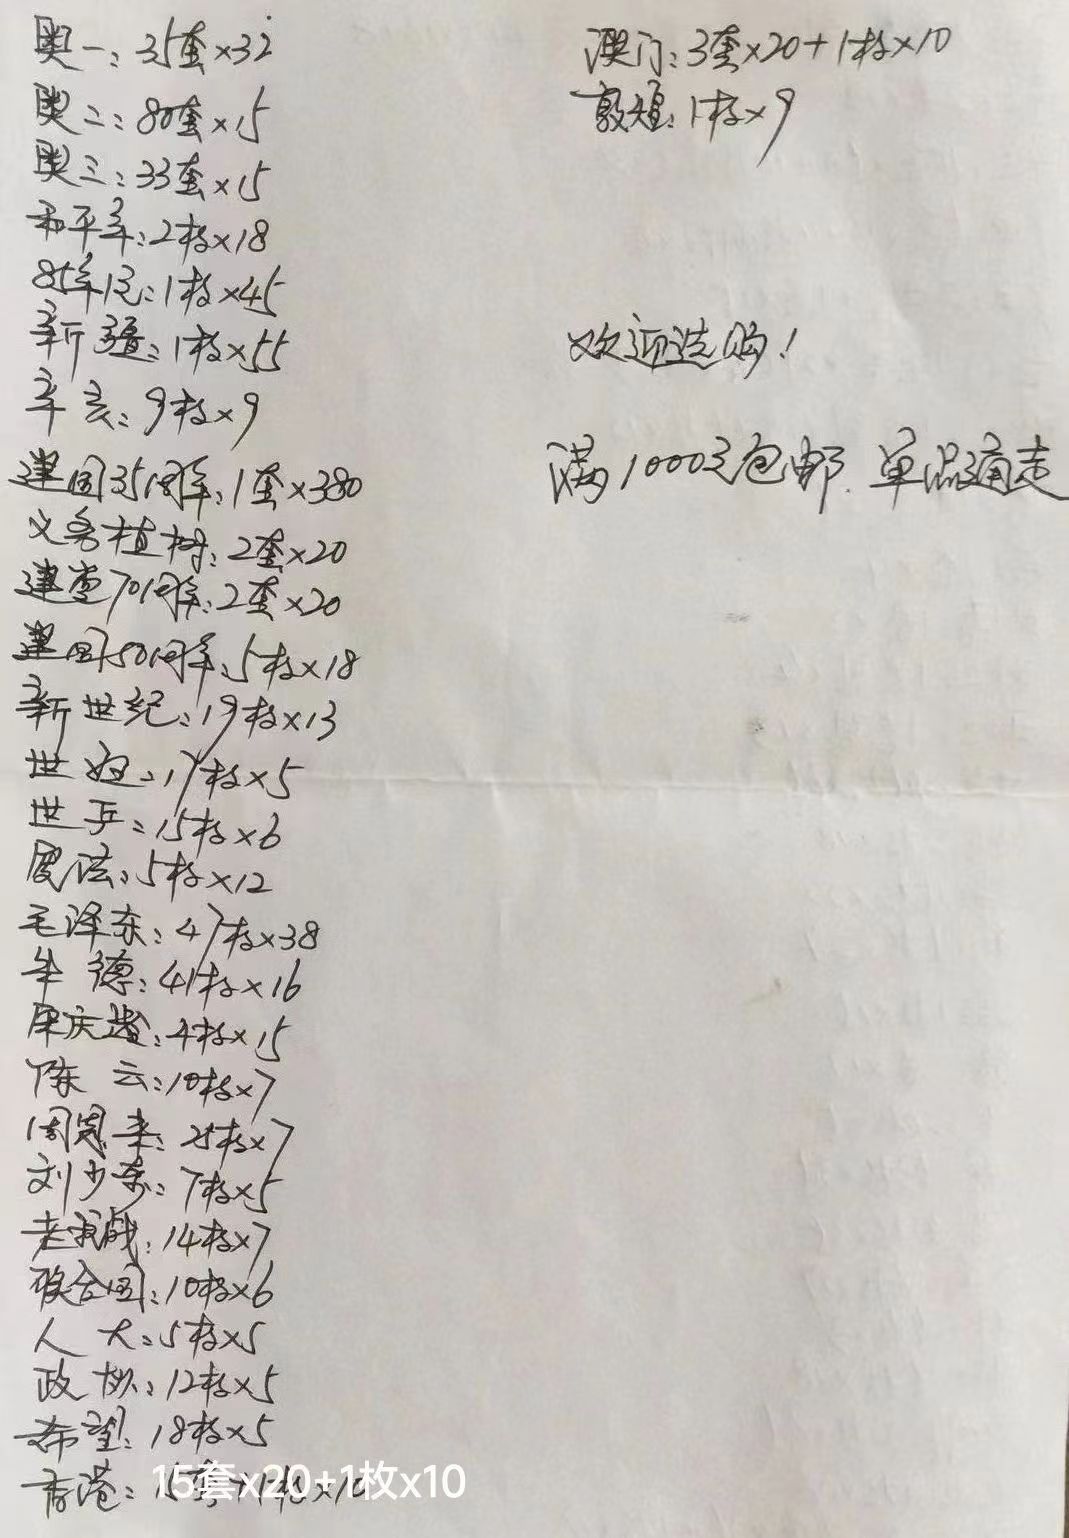 奥一:35套×32
奥二:80套×15
奥三:33套×15
和平年:2枚×18
85年1元:1枚×45
新疆:1枚×55
辛亥:9枚×9
建国35周年:1套×380
义务植树:2套×20
建党70周年:2套×20
建国50周年:5枚×18
新世纪:19枚×13
世妇:17枚×5
世乒:15枚×6
宪法:5枚×12
毛泽东:47枚×38
朱德:41枚×16
宋庆龄:4枚×15
陈云:10枚×7
周恩来:25枚×7
刘少奇:7枚×5
老抗战:14枚×7
联合国:10枚×6
人大:5枚×5
政协:12枚×5
希望:18枚×5
香港:15套x20+1枚x10
澳门:3套×20+1枚×10
敦煌:1枚×9
欢迎选购!
满1000元包邮.单品通走